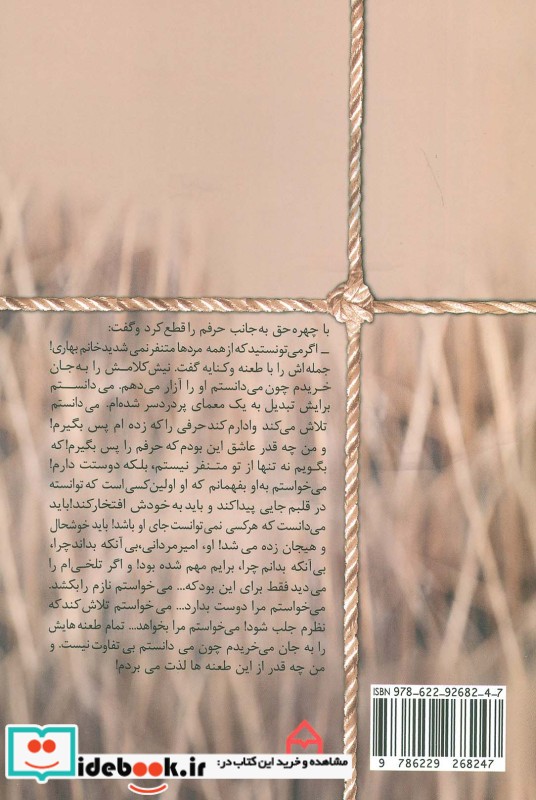 با چهره حق به جانب حرفم را قطع کرد وگفت:
_ اگر می تونستید که از همه مردها متنفر نمی شدید خانم بهاری!
جمله اش را با طعنه وکنایه گفت. نیش کلامش را به جان
خریدم چون می دانستم او را آزار می دهم. می دانستم
برایش تبدیل به یک معمای پردردسر شده ام. می دانستم
تلاش می کند وادارم کند حرفی را که زده ام پس بگیرم!
و من چه قدر عاشق این بودم که حرفم را پس بگیرم! که
بگویم نه تنها از تو متنفر نیستم، بلکه دوستت دارم!
می خواستم به او بفهمانم که او اولین کسی است که توانسته
در قلبم جایی پیدا کند و باید به خودش افتخار کند! باید
می دانست که هرکسی نمی توانست جای او باشد! باید خوشحال
و هیجان زده می شد! او، امیرمردانی، بی آنکه بداند چرا،
بی آنکه بدانم چرا، برایم مهم شده بود! و اگر تلخی ام را
می دید فقط برای این بود که... می خواستم نازم را بکشد.
می خواستم مرا دوست بدارد... می خواستم تلاش کند که
نظرم جلب شود! می خواستم مرا بخواهد... تمام طعنه هایش
را به جان می خریدم چون می دانستم بی تفاوت نیست. و
من چه قدر از این طعنه ها لذت می بردم!
ISBN 978-622-92682-4-7
9 786229 268247
مشاهده و خرید این کتاب در:
idebook.ir